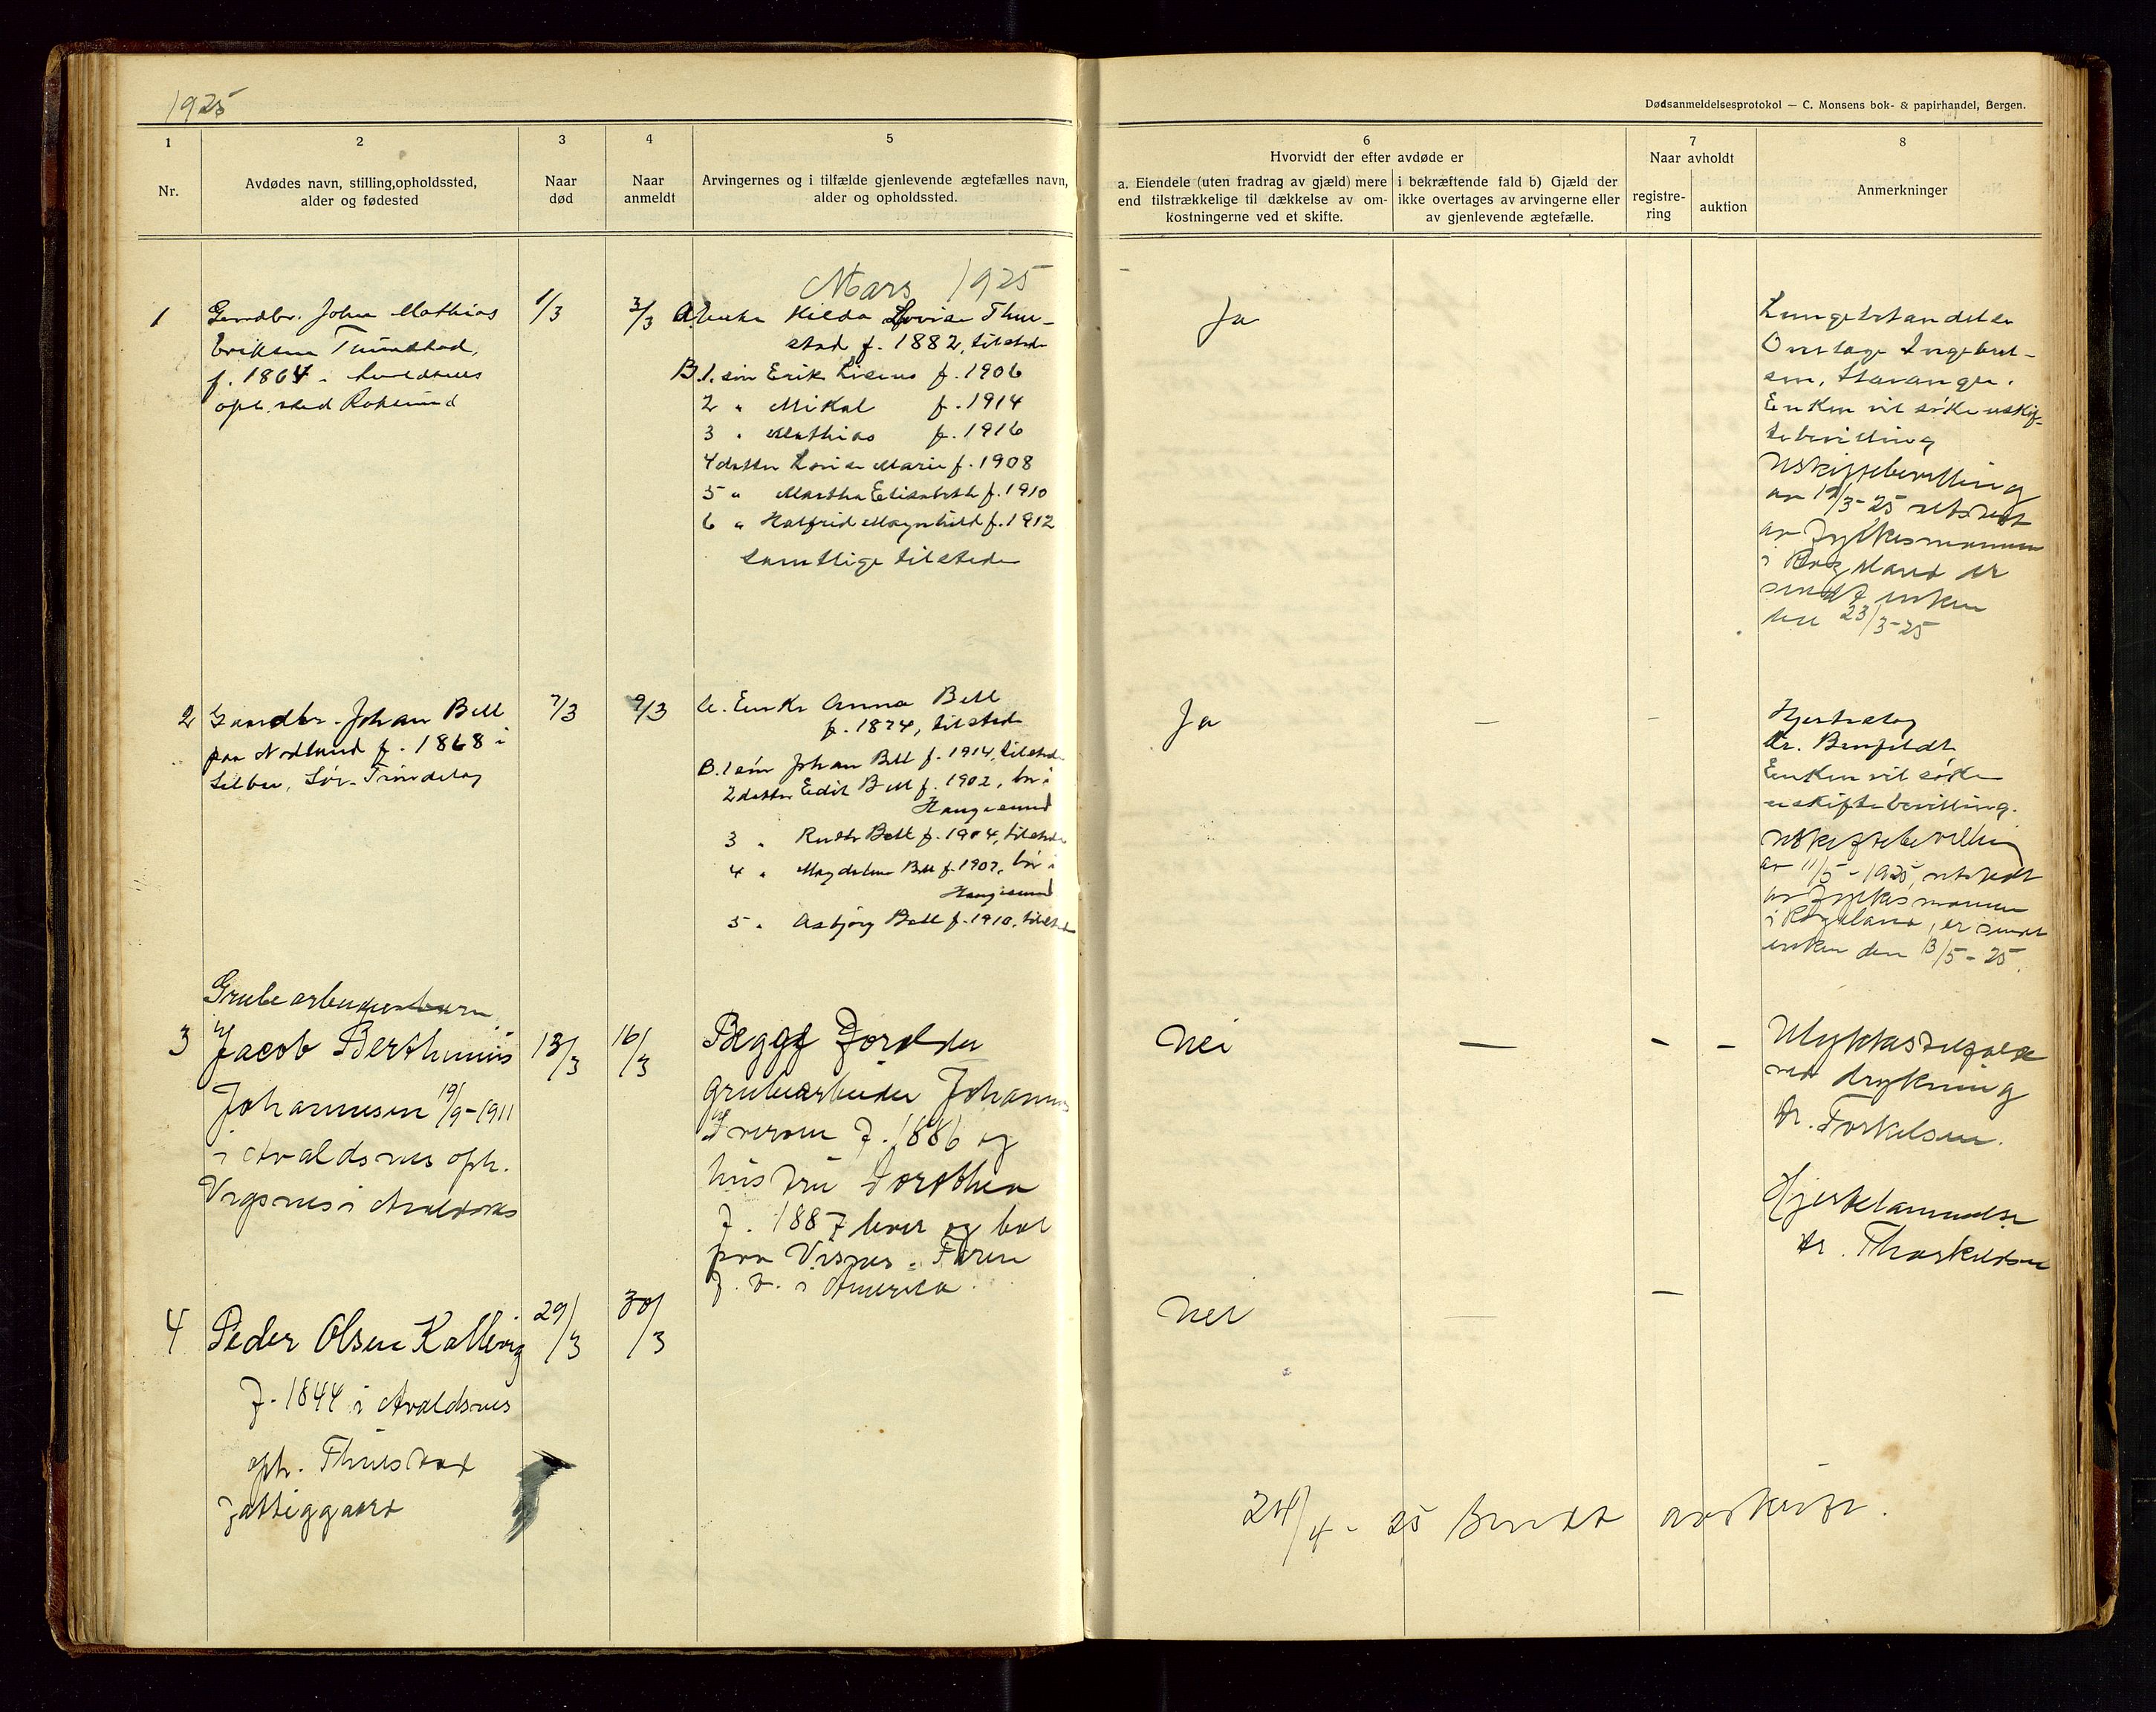 1925
Dødsanmeldelsesprotokol — C. Monsens bok- & papirhandel, Bergen.
1
2
3
4
5
6
7
8
Nr.
Avdødes navn, stilling, opholdssted,
alder og fødested
Naar
død
Naar
anmeldt
Arvingernes og i tilfælde gjenlevende ægtefælles navn,
alder og opholdssted.
Hvorvidt der efter avdøde er
a. Eiendele (uten fradrag av gjæld) mere
end tilstrækkelige til dækkelse av om-
kostningerne ved et skifte.
i bekræftende fald b) Gjæld der
ikke overtages av arvingerne eller
av gjenlevende ægtefælle.
Naar avholdt
registre-
ring
auktion
Anmerkninger
Mars 1925
1
Gaardbr. John Mathias
Eriksen
f. 1864
opl. sted
1/3
3/3
A Enke Hilda Lovise Thue-
stad f. 1882, tilstede
B. 1. søn Erik f. 1906
2 " Mikal f. 1914
3 " Mathias f. 1916
4 datter Lovise Marie f. 1908
5 " Martha Elisabeth f. 1910
6 " Halfrid Magnhild f. 1912
samtlige tilstede
Ja
Lungebetændelse
Overlæge Ingebret-
sen, Stavanger.
Enken vil söke uskif-
tebevilling
Uskiftebevilling
av 19/3-25 utstedt
av Fylkesmannen
i Rogaland er
sendt enken
den 23/3-25
2
Gaardbr. Johan Bell
paa Nodland f. 1868 i
Selbu, Sör-Tröndelag
7/3
9/3
A. Enke Anna Bell
f. 1874, tilstede
B. 1 sön Johan Bell f. 1914, tilstede
2 datter Edit Bell f. 1902, bor i
Haugesund
3 " Ruth Bell f. 1904, tilstede
4 " Magdalene Bell f. 1907, bor i
Haugesund
5 " Asbjörg Bell f. 1910, tilstede
Ja
—
—
Hjerteslag
Dr.
Enken vil söke
uskiftebevilling.
Uskiftebevilling
av 11/5-1925, utstedt
av Fylkesmannen
i Rogaland, er sendt
enken den 13/5-25.
Grubearbeider
3
Jacob Berthinius
Johannesen 19/9-1911
i Avaldsnes oph.
Vigsnes i Avaldsnes
13/3
16/3
Begge Forældre
grubearbeider Johannes
f. 1886 og
hustru Dorthea
f. 1887 lever og bor
paa Visnes. Faren
f. t. i Amerika.
Nei
—
—
—
Ulykkestilfælde
ved drukning
Dr. Torkelsen.
4
Peder Olsen Kallevig
f. 1844 i Avaldsnes
oph. Thuestad
fattiggaard
29/3
30/3
Nei
—
—
Hjertelammelse
Dr. Thorkildsen
24/4-25 Sendt avskrift.